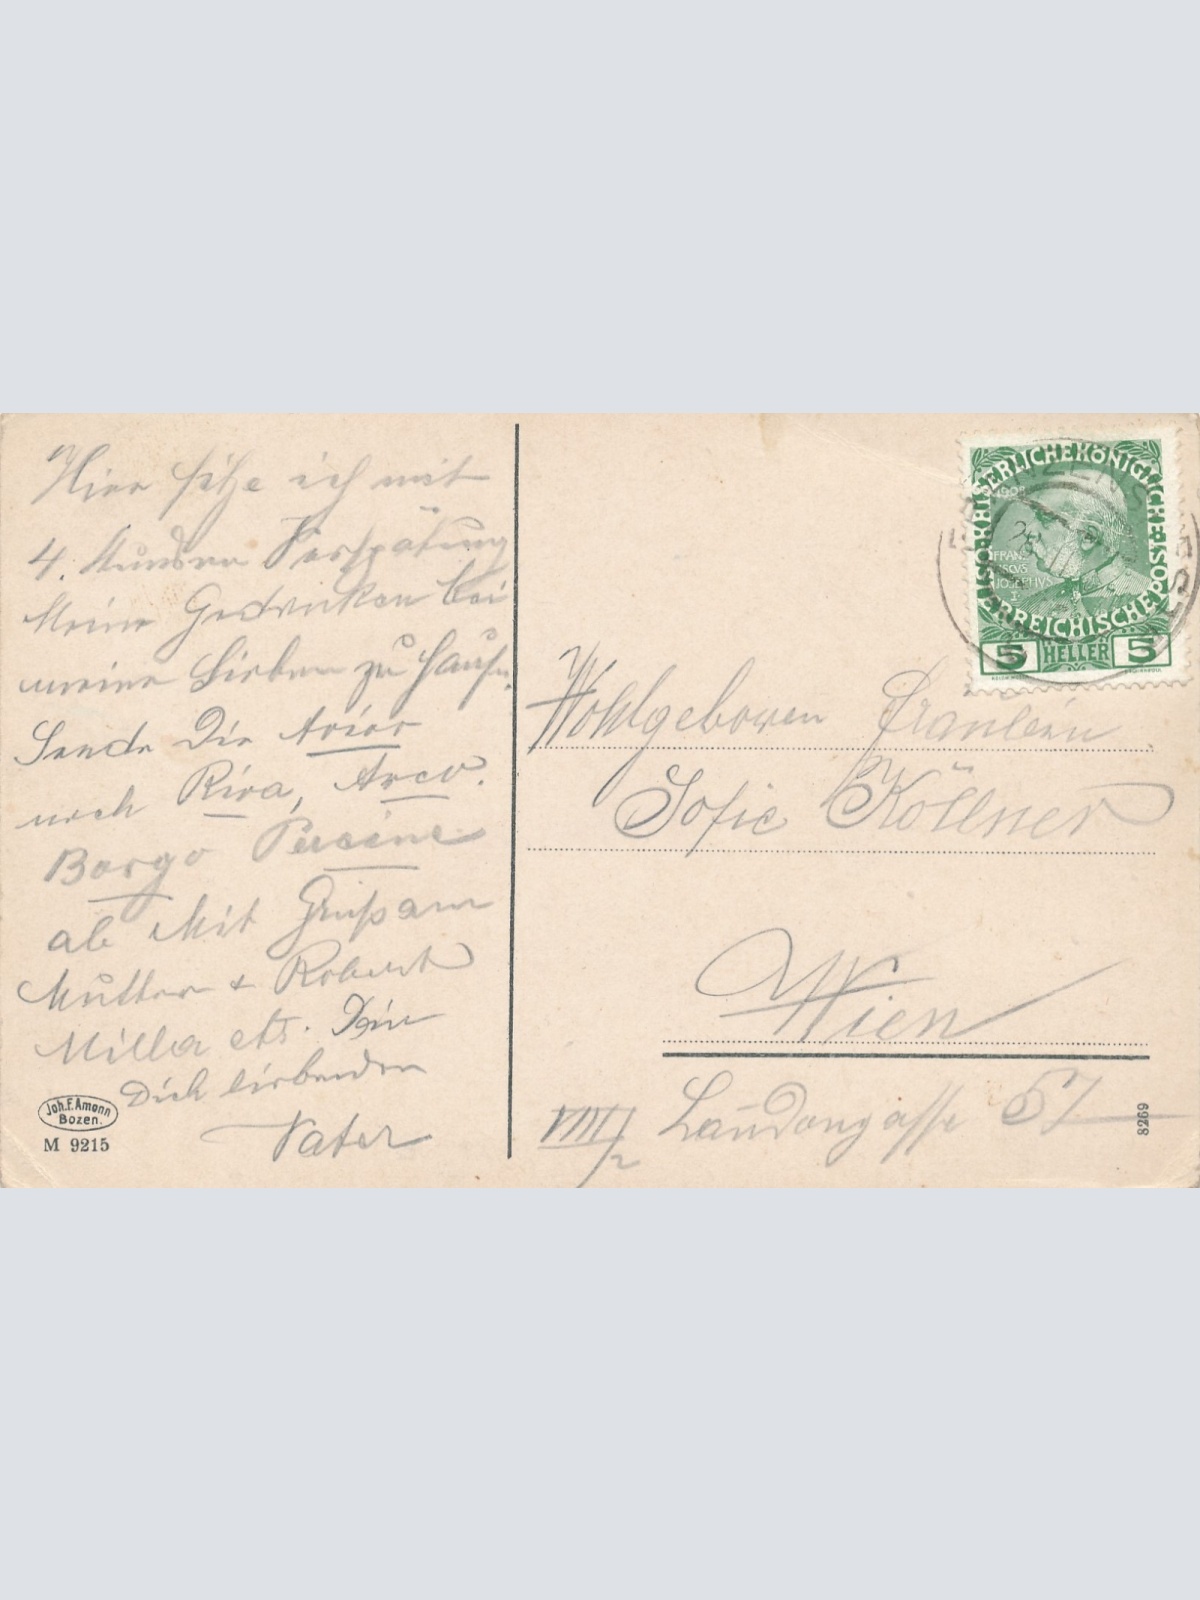 Hier sitze ich mit
4. Stunden Verspätung
Meine Gedanken bei
meine Lieben zu Hause.
Sende Dir
noch Riva, Arco.
Borgo
ab Mit Grüßen an
Mutter + Robert
Milla etc. Dein
Dich liebenden
Vater
Joh. F. Amonn
Bozen.
M 9215
KAISERLICHE KÖNIGLICHE
ÖSTERREICHISCHE POST
1908
FRAN
ISCVS
IOSEPHVS
I
5 HELLER 5
Wohlgeboren Fräulein
Sofie Köllner
Wien
VIII/2 Laudongasse 57
8269